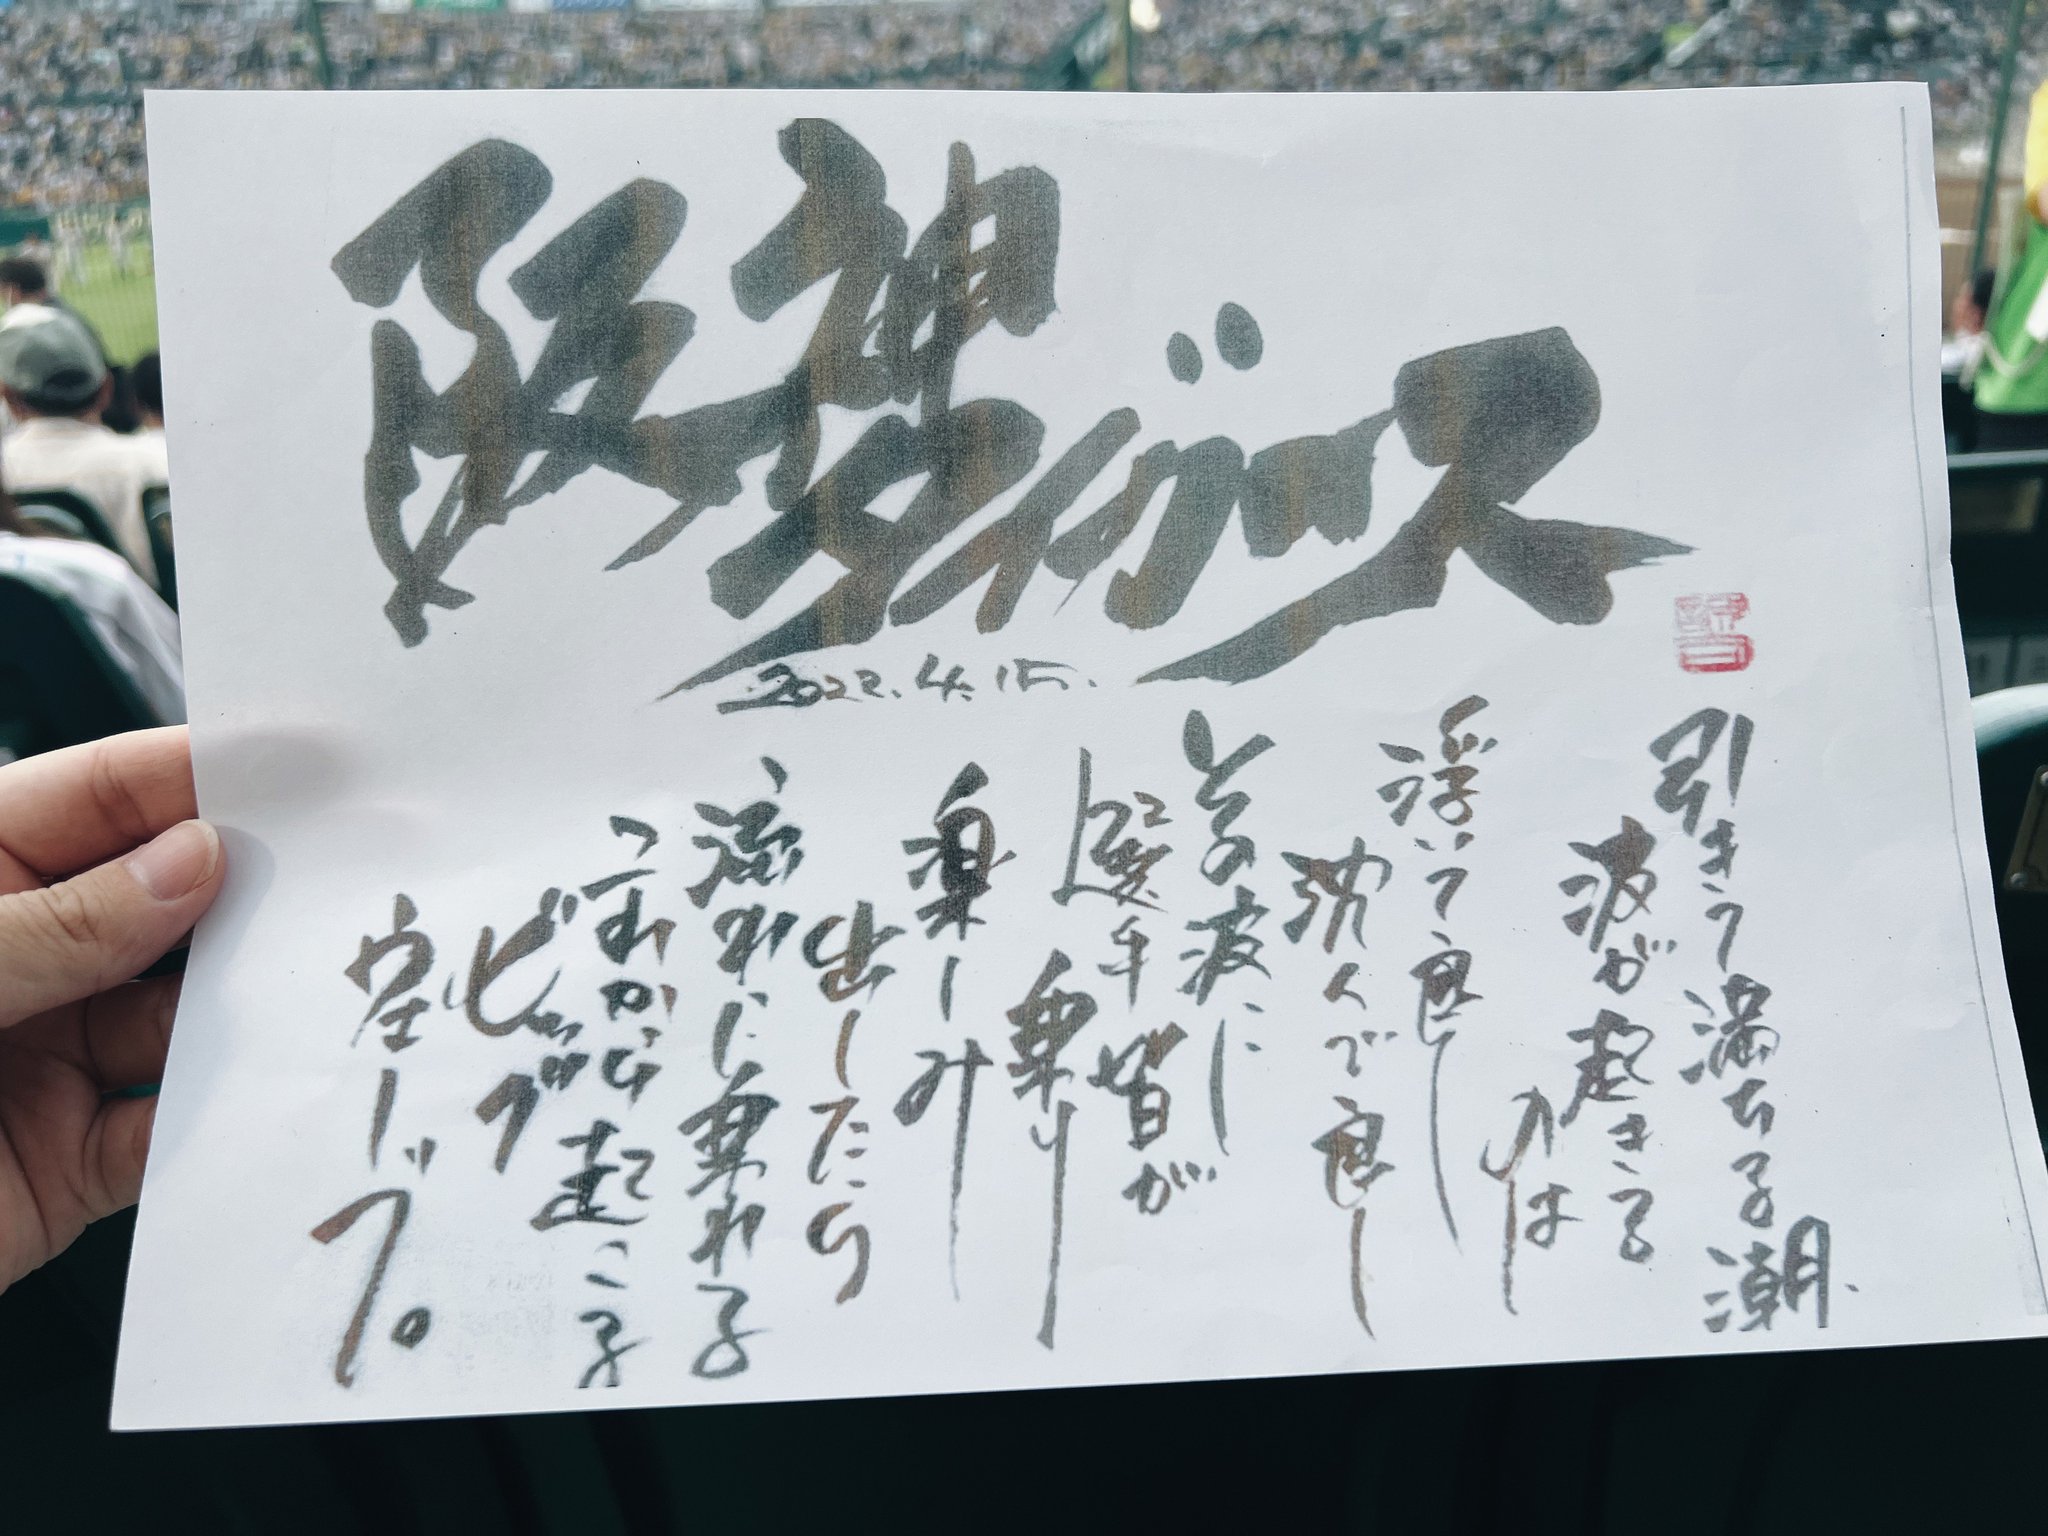 阪神タイガース
2022.4.15.
引きて満ちる潮、
波が起きる
のは
浮いて良し
沈んで良し
波に
選手皆が
乗り
楽しみ
出したら
流れに乗れる
これから起こる
ビッグ
ウェーブ。